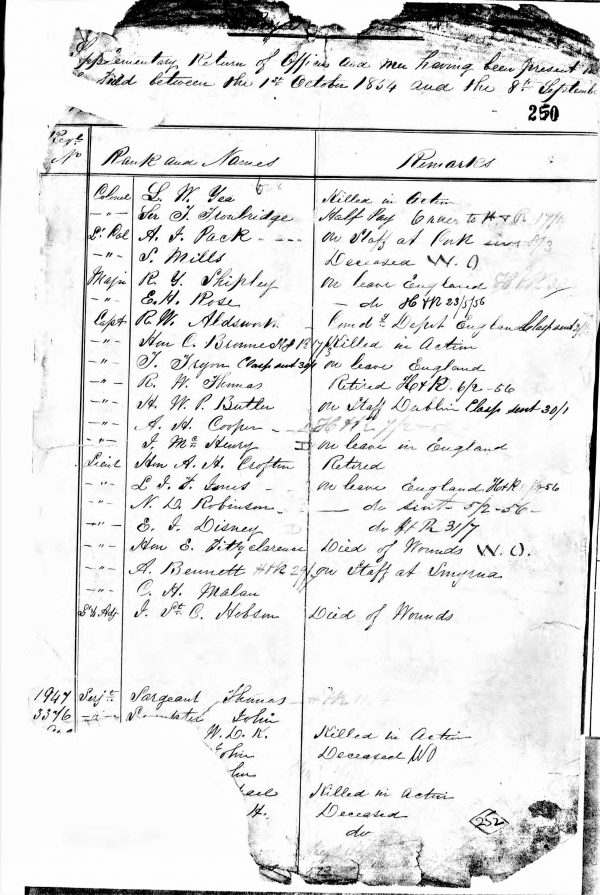 Supplementary Return of Officers and men having been present in
Field between the 1st October 1854 and the 8th September
250
Regtl No Rank and Names Remarks
Colonel L. W. Yea Killed in Action
-"- Sir T. Tronbridge Half Pay to H & R 17/
Lt Col A. J. Pack on Staff at Cork sent 8/3
-"- S. Mills Deceased W.O
Major R. Y. Shipley on leave England
-"- E. H. Rose do H&R 23/5/56
Capt R. W. Aldsworth Comdg Depot England Clasp sent
-"- Hon C. Browne Killed in Action
-"- T. Tryon Clasp sent 30/1 on leave England
-"- R. W. Thomas Retired H&R 6/2-56
-"- H. W. P. Butler on Staff Dublin Clasp sent 30/1
-"- A. H. Cooper H&R 7/2
-"- J. Mc Henry on leave in England
Lieut Hon A. H. Crofton Retired
-"- L. J. F. Jones on leave England H&R 56
-"- N. D. Robinson do sent 5/2-56-
-"- E. J. Disney do H&R 31/7
-"- Hon E. Fitzclarence Died of Wounds W.O.
-"- A. Bennett H&R on Staff at Smyrna
-"- C. H. Malan
Lt & Adj J. St C. Hobson Died of Wounds
1947 Serjt Sargeant Thomas
3376 -"- John
W. D. K. Killed in Action
John Deceased WO
hn
ael Killed in Action
H. Deceased
do
252